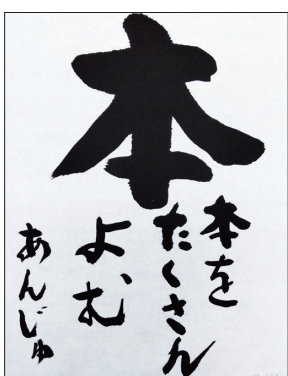 本
本を
たくさん
よむ
あんじゅ